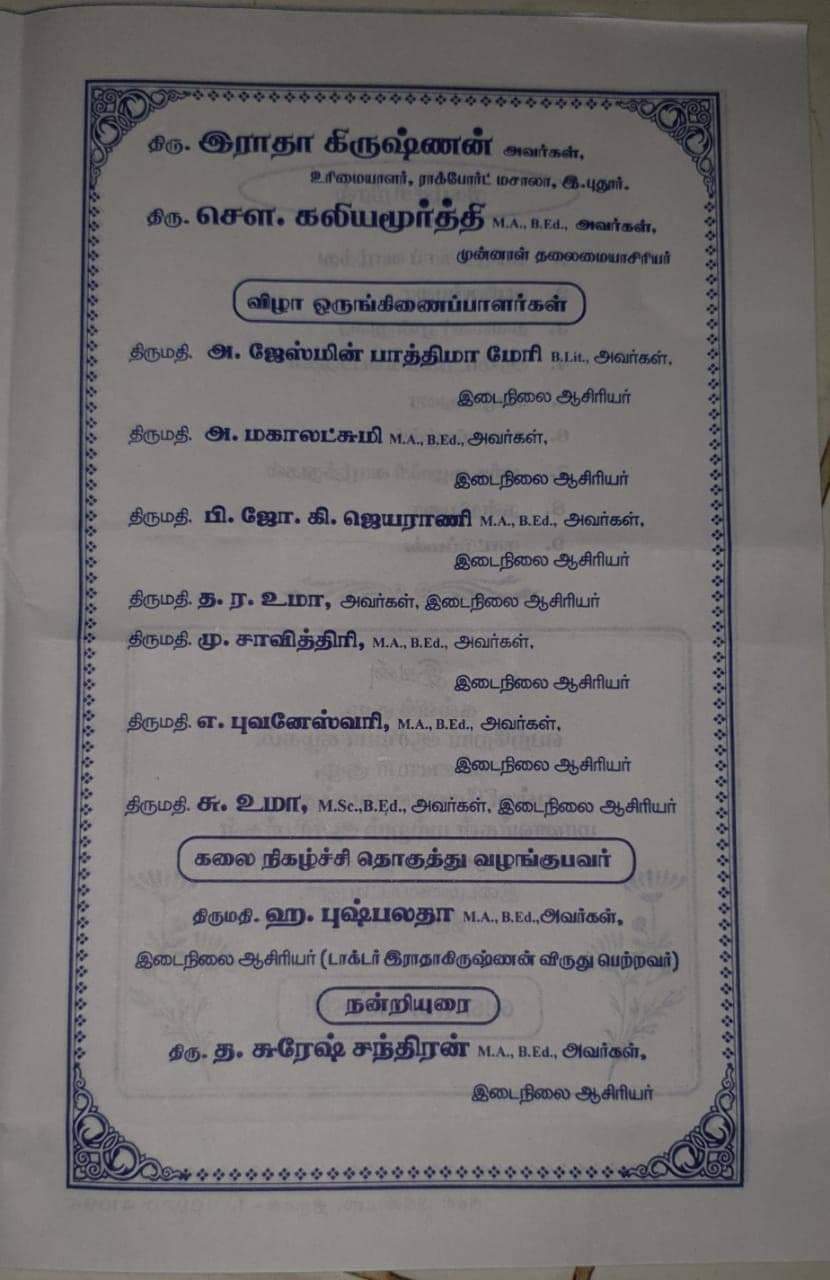 திரு. இராதா கிருஷ்ணன் அவர்கள்,
உரிமையாளர், ராக்போர்ட் மசாலா, இ.புதூர்.
திரு. சௌ. கலியமூர்த்தி M.A., B.Ed., அவர்கள்,
முன்னாள் தலைமையாசிரியர்
விழா ஒருங்கிணைப்பாளர்கள்
திருமதி. அ. ஜேஸ்மின் பாத்திமா மேரி B.Lit., அவர்கள்,
இடைநிலை ஆசிரியர்
திருமதி. அ. மகாலட்சுமி M.A., B.Ed., அவர்கள்,
இடைநிலை ஆசிரியர்
திருமதி. பி. ஜோ. கி. ஜெயராணி M.A., B.Ed., அவர்கள்,
இடைநிலை ஆசிரியர்
திருமதி. த. ர. உமா, அவர்கள், இடைநிலை ஆசிரியர்
திருமதி. மு. சாவித்திரி, M.A., B.Ed., அவர்கள்,
இடைநிலை ஆசிரியர்
திருமதி. எ. புவனேஸ்வரி, M.A., B.Ed., அவர்கள்,
இடைநிலை ஆசிரியர்
திருமதி. சு. உமா, M.Sc.,B.Ed., அவர்கள், இடைநிலை ஆசிரியர்
கலை நிகழ்ச்சி தொகுத்து வழங்குபவர்
திருமதி. ஹ. புஷ்பலதா M.A., B.Ed.,அவர்கள்,
இடைநிலை ஆசிரியர் (டாக்டர் இராதாகிருஷ்ணன் விருது பெற்றவர்)
நன்றியுரை
திரு. த. சுரேஷ் சந்திரன் M.A., B.Ed., அவர்கள்,
இடைநிலை ஆசிரியர்